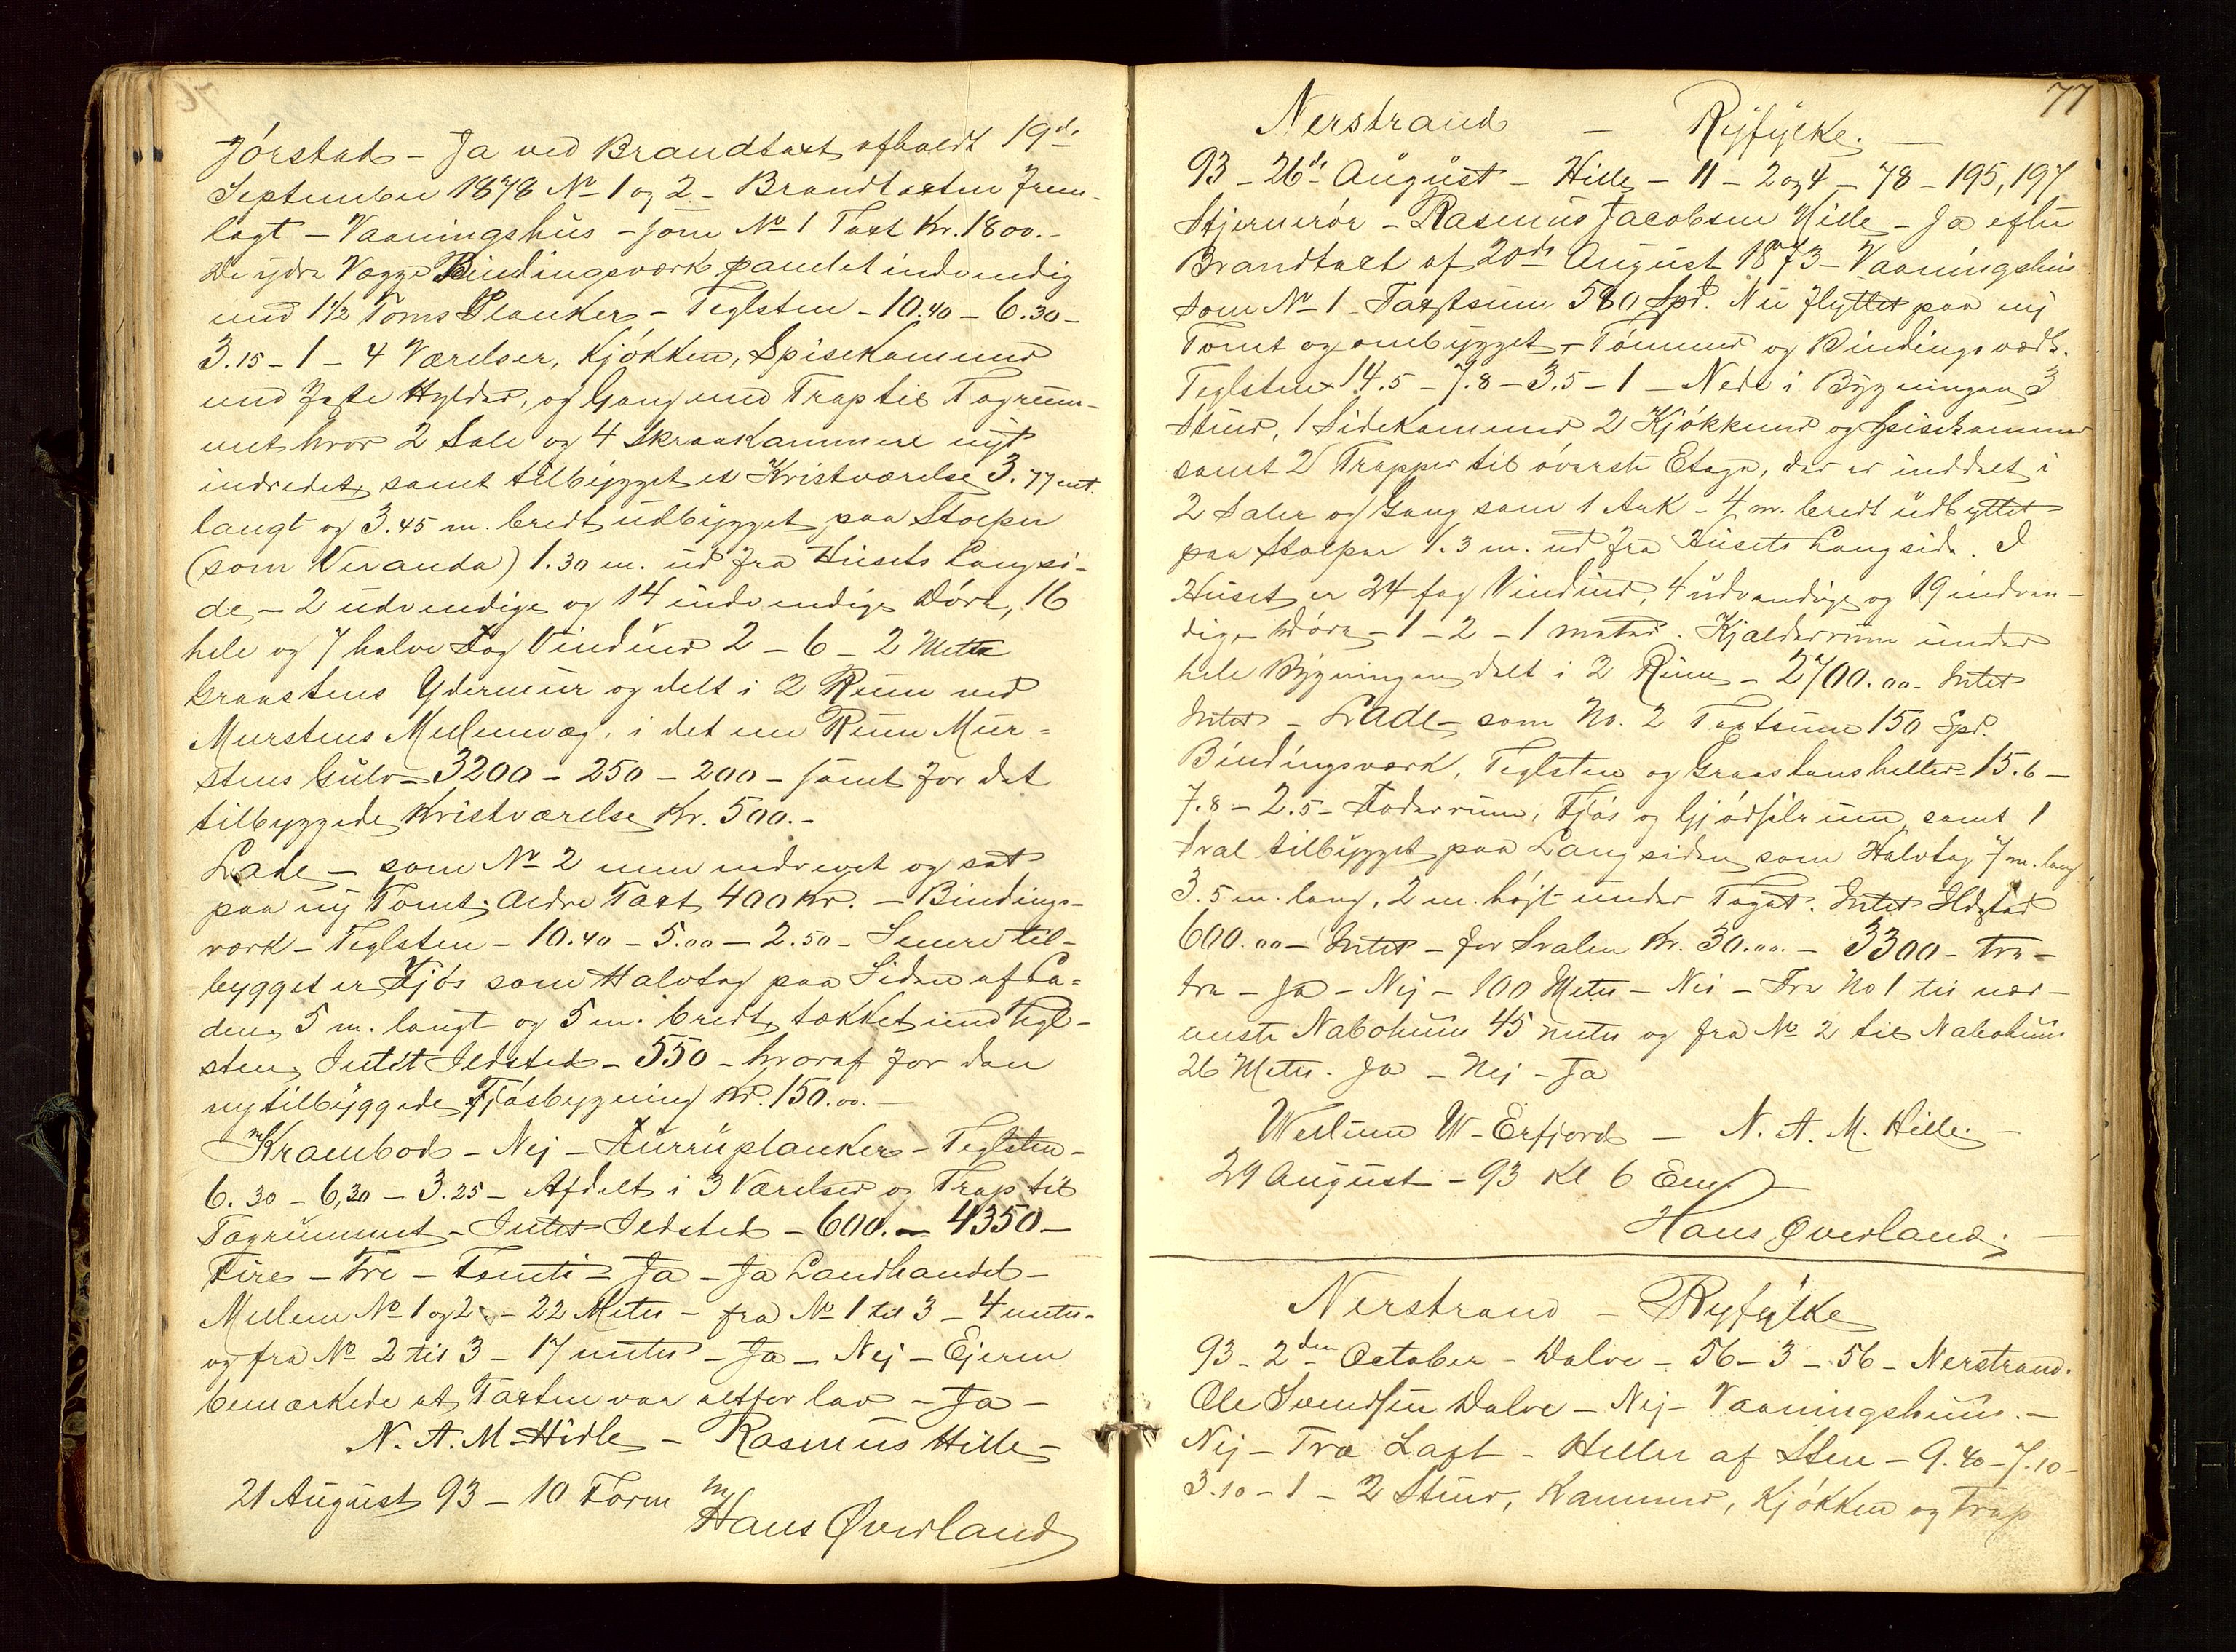 Jørstad – Ja ved Brandtaxt afholdt 19de
September 1878 No 1 og 2 – Brandtaxten frem-
lagt – Vaaningshus – som No 1 Taxt Kr. 1800.–
De ydre Vægge Bindingsværk panelet indvendig
med 1 1/2 Toms Planker – Teglsten – 10.40 – 6.30 –
3.15 – 1 – 4 Værelser, Kjøkken, Spisekammer
med faste Hylder, og Gang med Trap til Tagrum-
met hvor 2 Sale og 4 Skraakammere nyt
indredet, samt tilbygget et Kvistværelse 3.77 mt.
langt og 3.45 m. bredt udbygget paa Stolper
(som Veranda) 1.30 m. ud fra Husets Langsi-
de – 2 udvendige og 14 indvendige Døre, 16
hele og 7 halve Fag Vinduer 2 – 6 – 2 Meter
Graastens Ydermur og delt i 2 Rum ved
Murstens Mellemvæg, i det ene Rum Mur-
stens Gulv – 3200 – 250 – 200 – samt for det
tilbyggede Kvistværelse Kr. 500.–
Lade – som No 2 men nedrevet og sat
paa ny Tomt. Ældre Taxt 400 Kr. – Bindings-
værk – Teglsten – 10.40 – 5.00 – 2.50 – Senere til-
bygget er Fjøs som Halvtag paa Siden af La-
den, 5 m. langt og 5 m. bredt, tækket med Tegl-
sten, Intet Ildsted – 550 – hvoraf for den
nytilbyggede Fjøsbygning Kr. 150.00.–
Krambod – Nej – Furruplanker – Teglsten –
6.30 – 6,30 – 3.25 – Afdelt i 3 Værelser og Trap til
Tagrummet – Intet Ildsted – 600.– 4350 –
Fire – Tre – Tomti – Ja – Ja Landhandel –
Mellem No 1 og 2 – 22 Meter – fra No 1 til 3 – 4 meter –
og fra No 2 til 3 – 17 meter – Ja – Nej – Ejeren
bemærkede at Taxten var altfor lav – Ja –
N. A. M. Hidle – Rasmus Hille –
21 August 93 – 10 Form
Hans Øverland
77
Nerstrand – Ryfylke. –
93 – 26de August – Hille – 11 – 2 og 4 – 78 – 195, 197
Stjernerør – Rasmus Jacobsen Hille – Ja efter
Brandtaxt af 20de August 1873 – Vaaningshus
som No 1 – Taxtsum 580 Spd. Nu flyttet paa ny
Tomt og ombygget – Tømmer og Bindingsværk.
Teglsten 14.5 – 7.8 – 3.5 – 1 – Nede i Bygningen 3
Stuer, 1 Sidekammer 2 Kjøkkener og Spisekammer
samt 2 Trapper til øverste Etage, der er inddelt i
2 Saler og Gang som 1 Ark – 4 m. bredt udbyttet
paa Stolper 1.3 m. ud fra Husets Langside. I
Huset er 24 fag Vinduer, 4 udvendige og 19 indven-
dige Døre – 1 – 2 – 1 meter. Kjælderrum under
hele Bygningen delt i 2 Rum – 2700.00 – Intet
Intet – Lade – som No. 2 Taxtsum 150 Spd.
Bindingsværk, Teglsten og Graastenshelter – 15.6 –
7.8 – 2.5 – Foderrum, Fjøs og Gjødselrum, samt 1
Sval tilbygget paa Langsiden som Halvtag 7 m. lang
3.5 m. lang, 2 m. højt under Taget. Intet Ildsted
600.00 – Intet – for Svalen Kr. 30.00. – 3300 – tre –
tre – Ja – Nej – 100 Meter – Nei – Fra No 1 til nær-
meste Nabohuus 45 meter og fra No 2 til Nabohuus
26 Meter. Ja – Nej – Ja
W. Erfjord – N. A. M. Hille. –
29 August – 93 Kl 6 Em
Hans Øverland. –
Nerstrand – Ryfylke
93 – 2den October – Dalve – 56 – 3 – 56 – Nerstrand.
Ole Svendsen Dalve – Nej – Vaaningshuus. –
Nej – Træ Laft – Heller af Sten – 9.40 – 7.10 –
3.10 – 1 – 2 Stuer, Kammer, Kjøkken og Trap